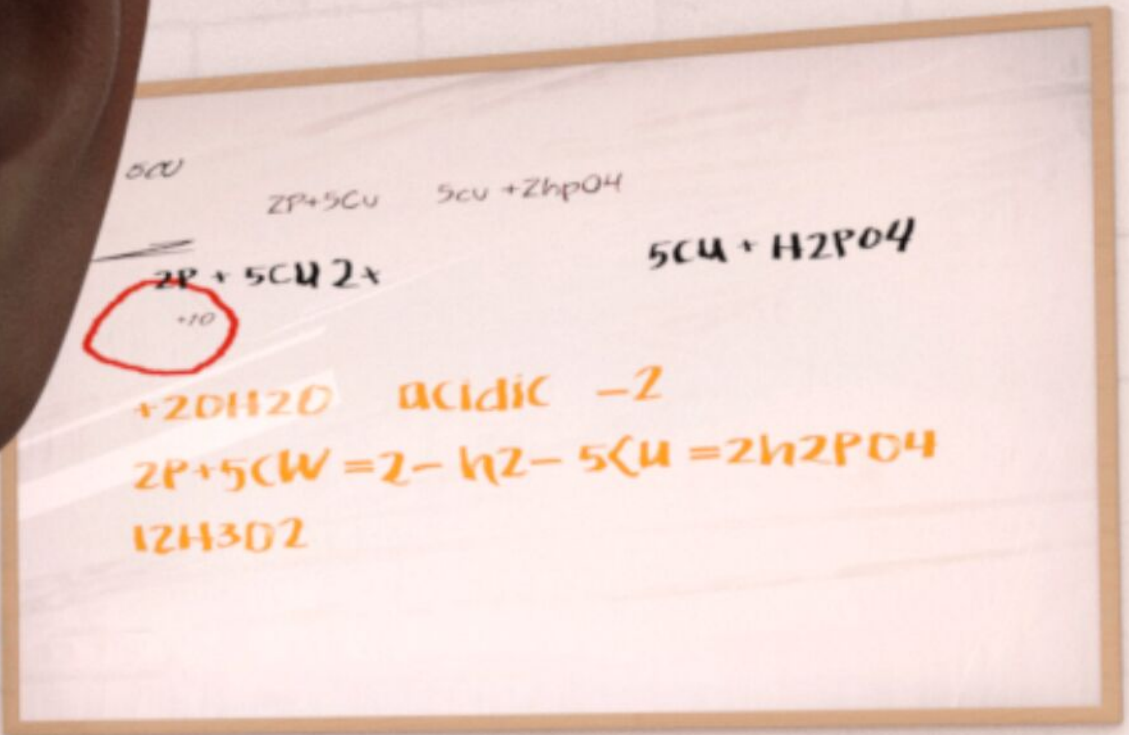 5CU
2P+5Cu 5cu +2hpO4
2P + 5CU 2+ 5CU + H2PO4
+10
+20H20 acidic -2
2P+5CW =2- h2- 5Cu =2h2PO4
12H302